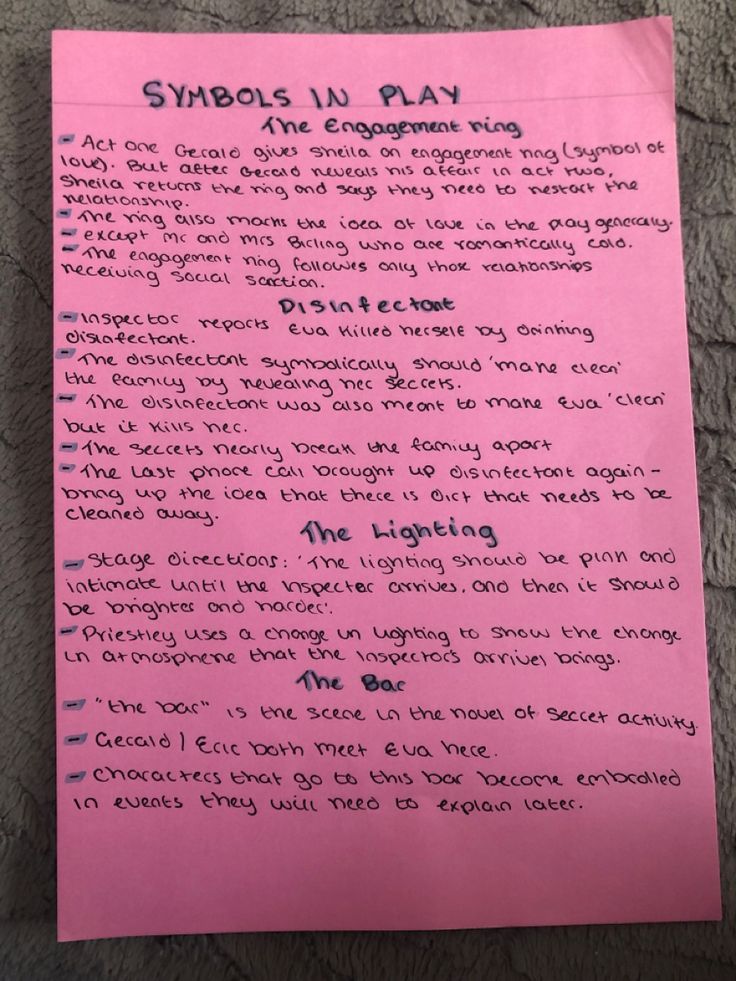 SYMBOLS IN PLAY
The Engagement ring
- Act one Gerald gives Sheila an engagement ring (symbol of
love). But after Gerald reveals his affair in act two,
Sheila returns the ring and says they need to restart the
relationship.
- The ring also marks the idea of love in the play generally.
- except Mr and Mrs Birling who are romantically cold.
- The engagement ring followes only those relationships
receiving social sanction.
Disinfectant
- Inspector reports Eva killed herself by drinking
disinfectant.
- The disinfectant symbolically should 'make clean'
the family by revealing her secrets.
- The disinfectant was also meant to make Eva 'clean'
but it kills her.
- The secrets nearly break the family apart
- The last phone call brought up disinfectant again -
bring up the idea that there is dirt that needs to be
cleaned away.
The Lighting
- Stage directions: 'The lighting should be pink and
intimate until the inspector arrives, and then it should
be brighter and harder'.
- Priestley uses a change in lighting to show the change
in atmosphere that the Inspector's arrival brings.
The Bar
- "the bar" is the scene in the novel of secret activity.
- Gerald / Eric both meet Eva here.
- Characters that go to this bar become embroiled
in events they will need to explain later.